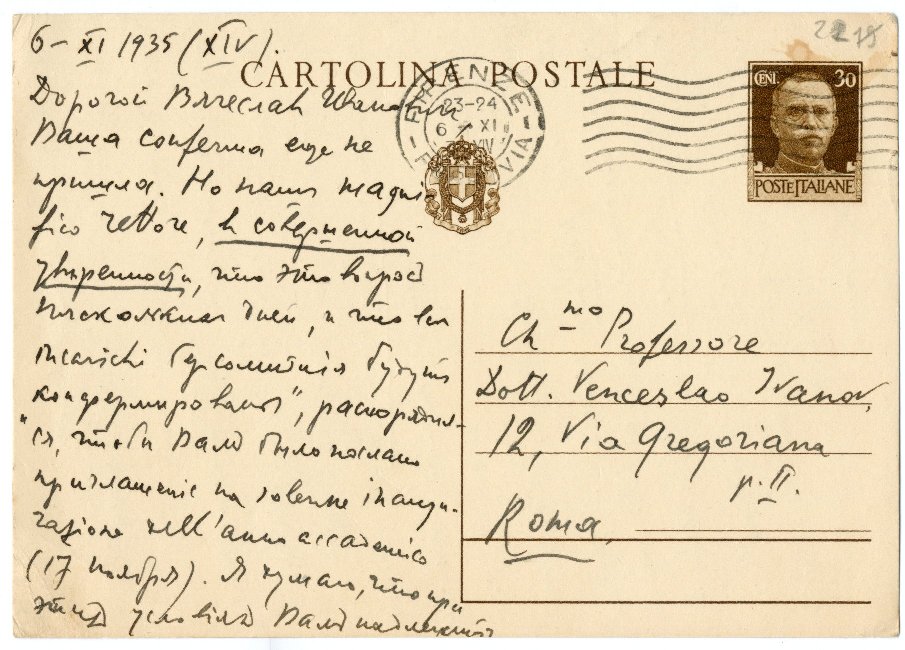 2218
6 – XI 1935 (XIV).
CARTOLINA POSTALE
Дорогой Вячеслав Иванович
Ваша conferma еще не
пришла. Но наш magni-
fico rettore, в совершенной
уверенности, что это вопрос
нескольких дней, и что все
incarichi безсомнения будут
"конфермированы", распорядил-
ся, чтобы Вам было послано
приглашение на solenne inaugu-
razione dell'anno accademico
(17 ноября). Я думаю, что при
этих условиях Вам надлежит
FIRENZE
23-24
6 XI
XIV
CENT 30
POSTE ITALIANE
Ch mo Professore
Dott. Venceslao Ivanov,
12, Via Gregoriana
p. II.
Roma,